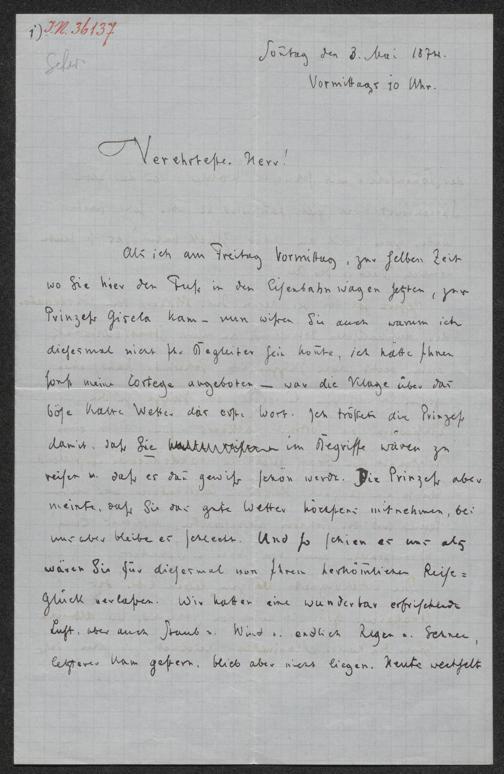 1) I.N. 36137
Soñtag den 3. Mai 1874.
Vormittags 10 Uhr.
Verehrtester Herr!
Als ich am Freitag Vormittag, zur selben Zeit
wo Sie hier den Fuß in den Eisenbahnwagen setzten, zur
Prinzeß Gisela kam – nun wißen Sie auch warum ich
diesesmal nicht Ihr Begleiter sein koñte, ich hätte Ihnen
sonst meine Cortege angeboten – war die Klage über das
böse kalte Wetter das erste Wort. Ich tröstete die Prinzeß
damit, daß Sie im Begriffe wären zu
reisen u. daß es dañ gewiß schön werde. Die Prinzeß aber
meinte, daß Sie das gute Wetter höchstens mitnehmen, bei
uns aber bleibe es schlecht. Und so schien es uns als
wären Sie für diesesmal von Ihrem herkömlichen Reise=
glück verlaßen. Wir hatten eine wunderbar erfrischende
Luft, aber auch Staub u. Wind u. endlich Regen u. Schnee,
letzterer kam gestern, blieb aber nicht liegen. Heute wechselt